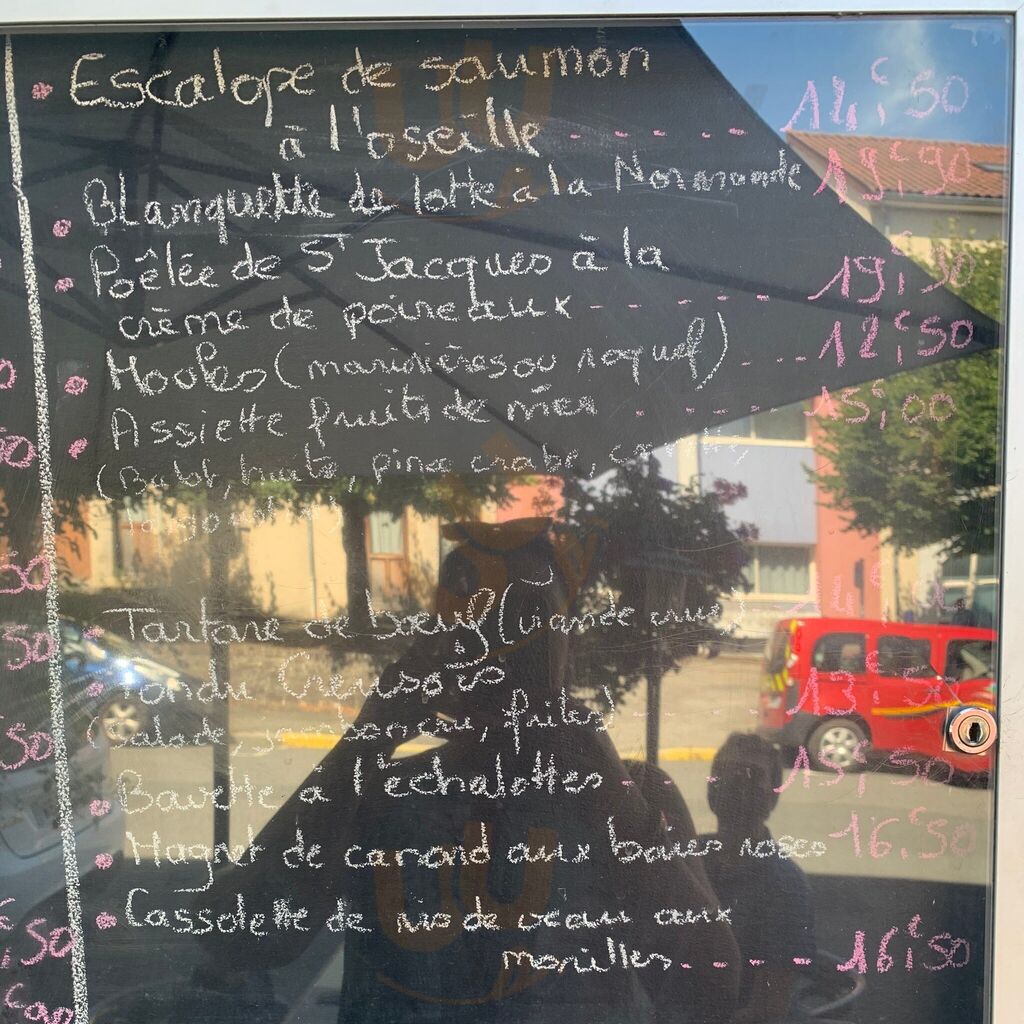 Escalope de saumon
à l'oseille - - - - - 14,€50
Blanquette de lotte à la Normande 19,€90
Poêlée de St Jacques à la
crème de poireaux - - - - - - 19,90
Moules (marinières ou roquef) - - - - 12,€50
Assiette fruits de mer - - - - 15,00
pince crabe,
Tartare de bœuf (viande crue)
Fondu Creusois
(Salade, jambon cru, frites) - - - - 13,€5
Bavette à l'échalottes - - - 15,50
Magret de canard aux baies roses 16,€50
Cassolette de ris de veau aux
morilles - - - - - 16,€50
50
50
50
50